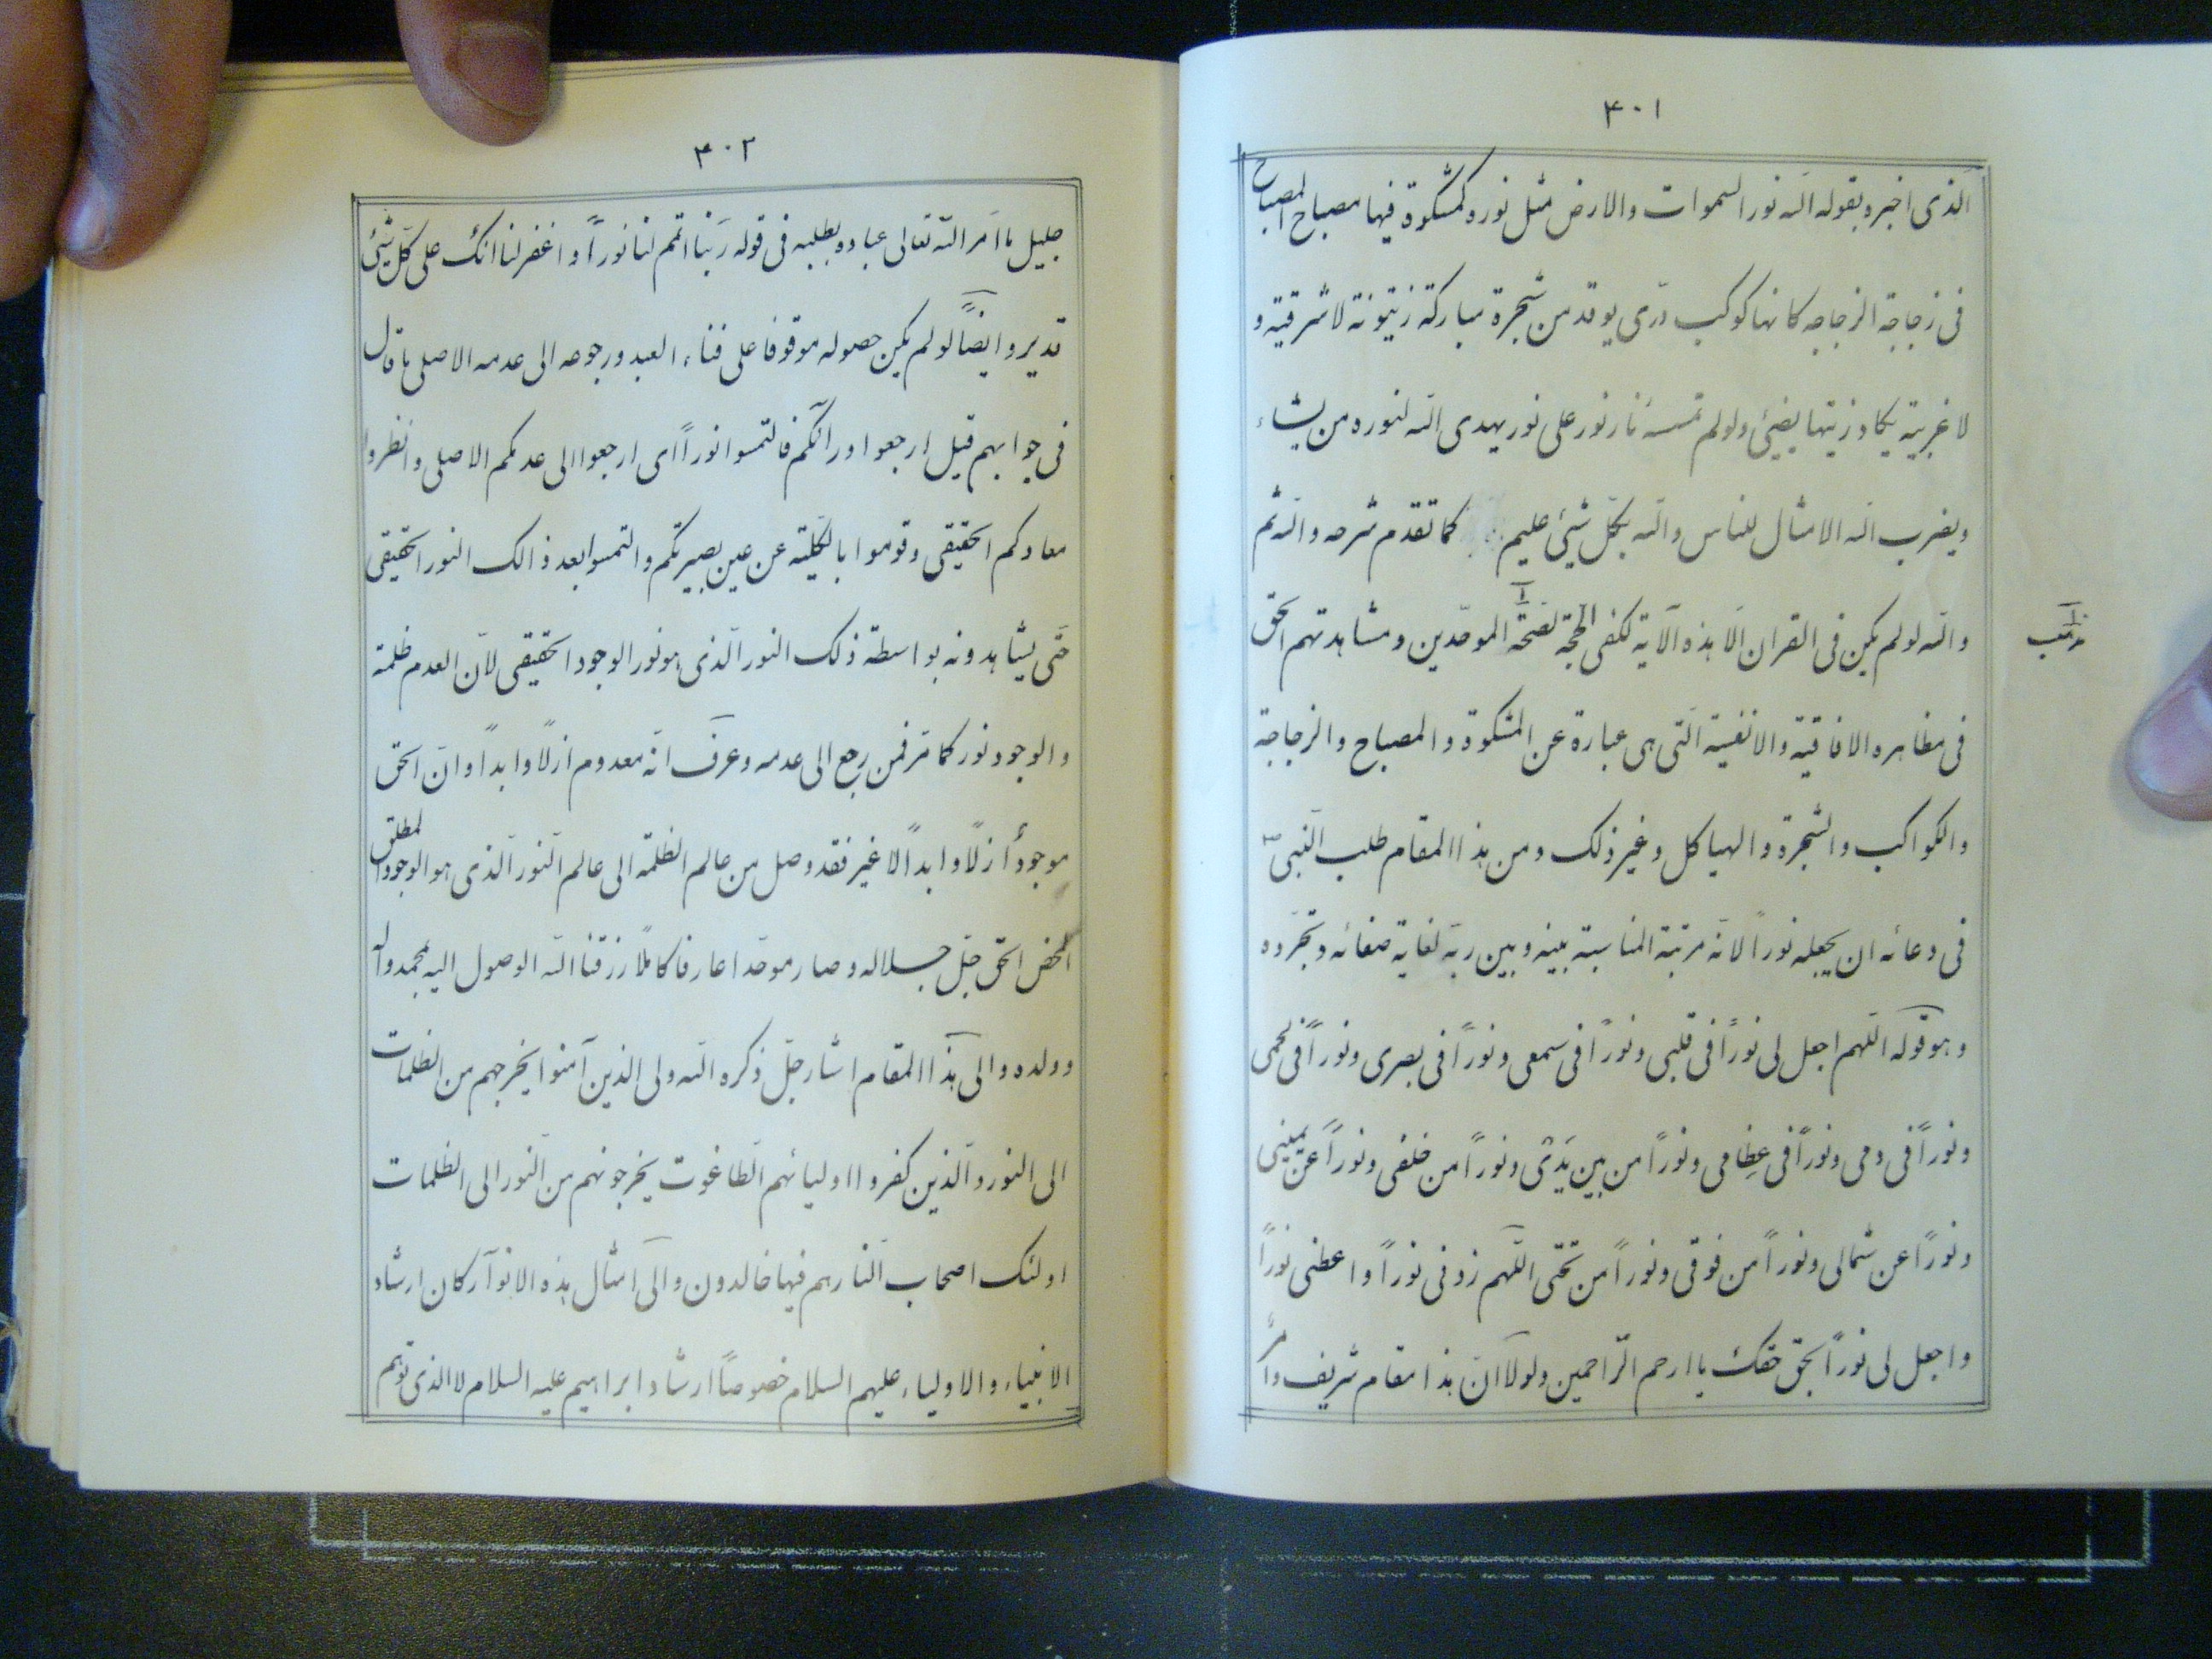 ۴۰۱
الذی اخبره بقوله الله نور السموات والارض مثل نوره کمشکوة فیها مصباح المصباح
فی زجاجة الزجاجه کانها کوکب درّی یوقد من شجرة مبارکة زیتونة لا شرقیة و
لا غربیّة یکاد زیتها یضیئ ولو لم تمسسه نار نور علی نور یهدی الله لنوره من یشاء
ویضرب الله الامثال للناس والله بکلّ شیئ علیم کما تقدم شرحه والله ثم
والله لو لم یکن فی القران الّا هذه الآیة لکفی الحجّة لصحّة الموحّدین ومشاهدتهم الحق
فی مظاهره الافاقیة والانفسیه الّتی هی عبارة عن المشکوة والمصباح والزجاجة
والکواکب والشجرة والهیاکل وغیر ذلک ومن هذا المقام طلب النّبی ص
فی دعائه ان یجعله نوراً لانّه مرتبة المناسبة بینه وبین ربّه لغایة صفائه وتجرّده
وهو قوله اللّهم اجعل لی نوراً فی قلبی ونوراً فی سمعی ونوراً فی بصری ونوراً فی لحمی
ونوراً فی دمی ونوراً فی عظامی ونوراً من بین یَدَیّ ونوراً من خلفی ونوراً عن یمینی
ونوراً عن شمالی ونوراً من فوقی ونوراً من تحتی اللّهم زدنی نوراً واعطنی نوراً
واجعل لی نوراً بحق حقک یا ارحم الرّاحمین ولولا انّ هذا مقام شریف وامرٌ
۴۰۲
جلیل ما اَمَر اللّه تعالی عباده بطلبه فی قوله رَبّنا اتمم لنا نوراً واغفر لنا انّک علی کلّ شیئ
قدیر وایضاً لو لم یکن حصوله موقوفا علی فناء العبد ورجوعه الی عدمه الاصلی ما قال
فی جوابهم قیل ارجعوا ورائکم فالتمسوا نوراً ای ارجعوا الی عدمکم الاصلی وانظروا
معادکم الحقیقی وقوموا بالکلّیّة عن عین بصیرتکم والتمسوا بعد ذالک النور الحقیقی
حَتّی یشاهدونه بواسطة ذلک النور الّذی هو نور الوجود الحقیقی لانّ العدم ظلمة
والوجود نور کما مرّ فمن رجع الی عدمه وعرف انّه معدوم ازلاً وابداً وانّ الحق
موجودٌ ازلاً وابداً لا غیر فقد وصل من عالم الظلمة الی عالم النّور الّذی هو الوجود المطلق
المحض الحق جلّ جلاله وصار موحّداً عارفا کاملاً رزقنا اللّه الوصول الیه بمحمد وآله
وولده والی هذا المقام اشار جلّ ذکره اللّه ولی الذین آمنوا یخرجهم من الظلمات
الی النور والّذین کفروا اولیائهم الطّاغوت یخرجونهم من النّور الی الظلمات
اولئک اصحاب النّار هم فیها خالدون والی امثال هذه الانوار کان ارشاد
الانبیاء والاولیاء علیهم السلام خصوصاً ارشاد ابراهیم علیه السلام لا الذی توهم